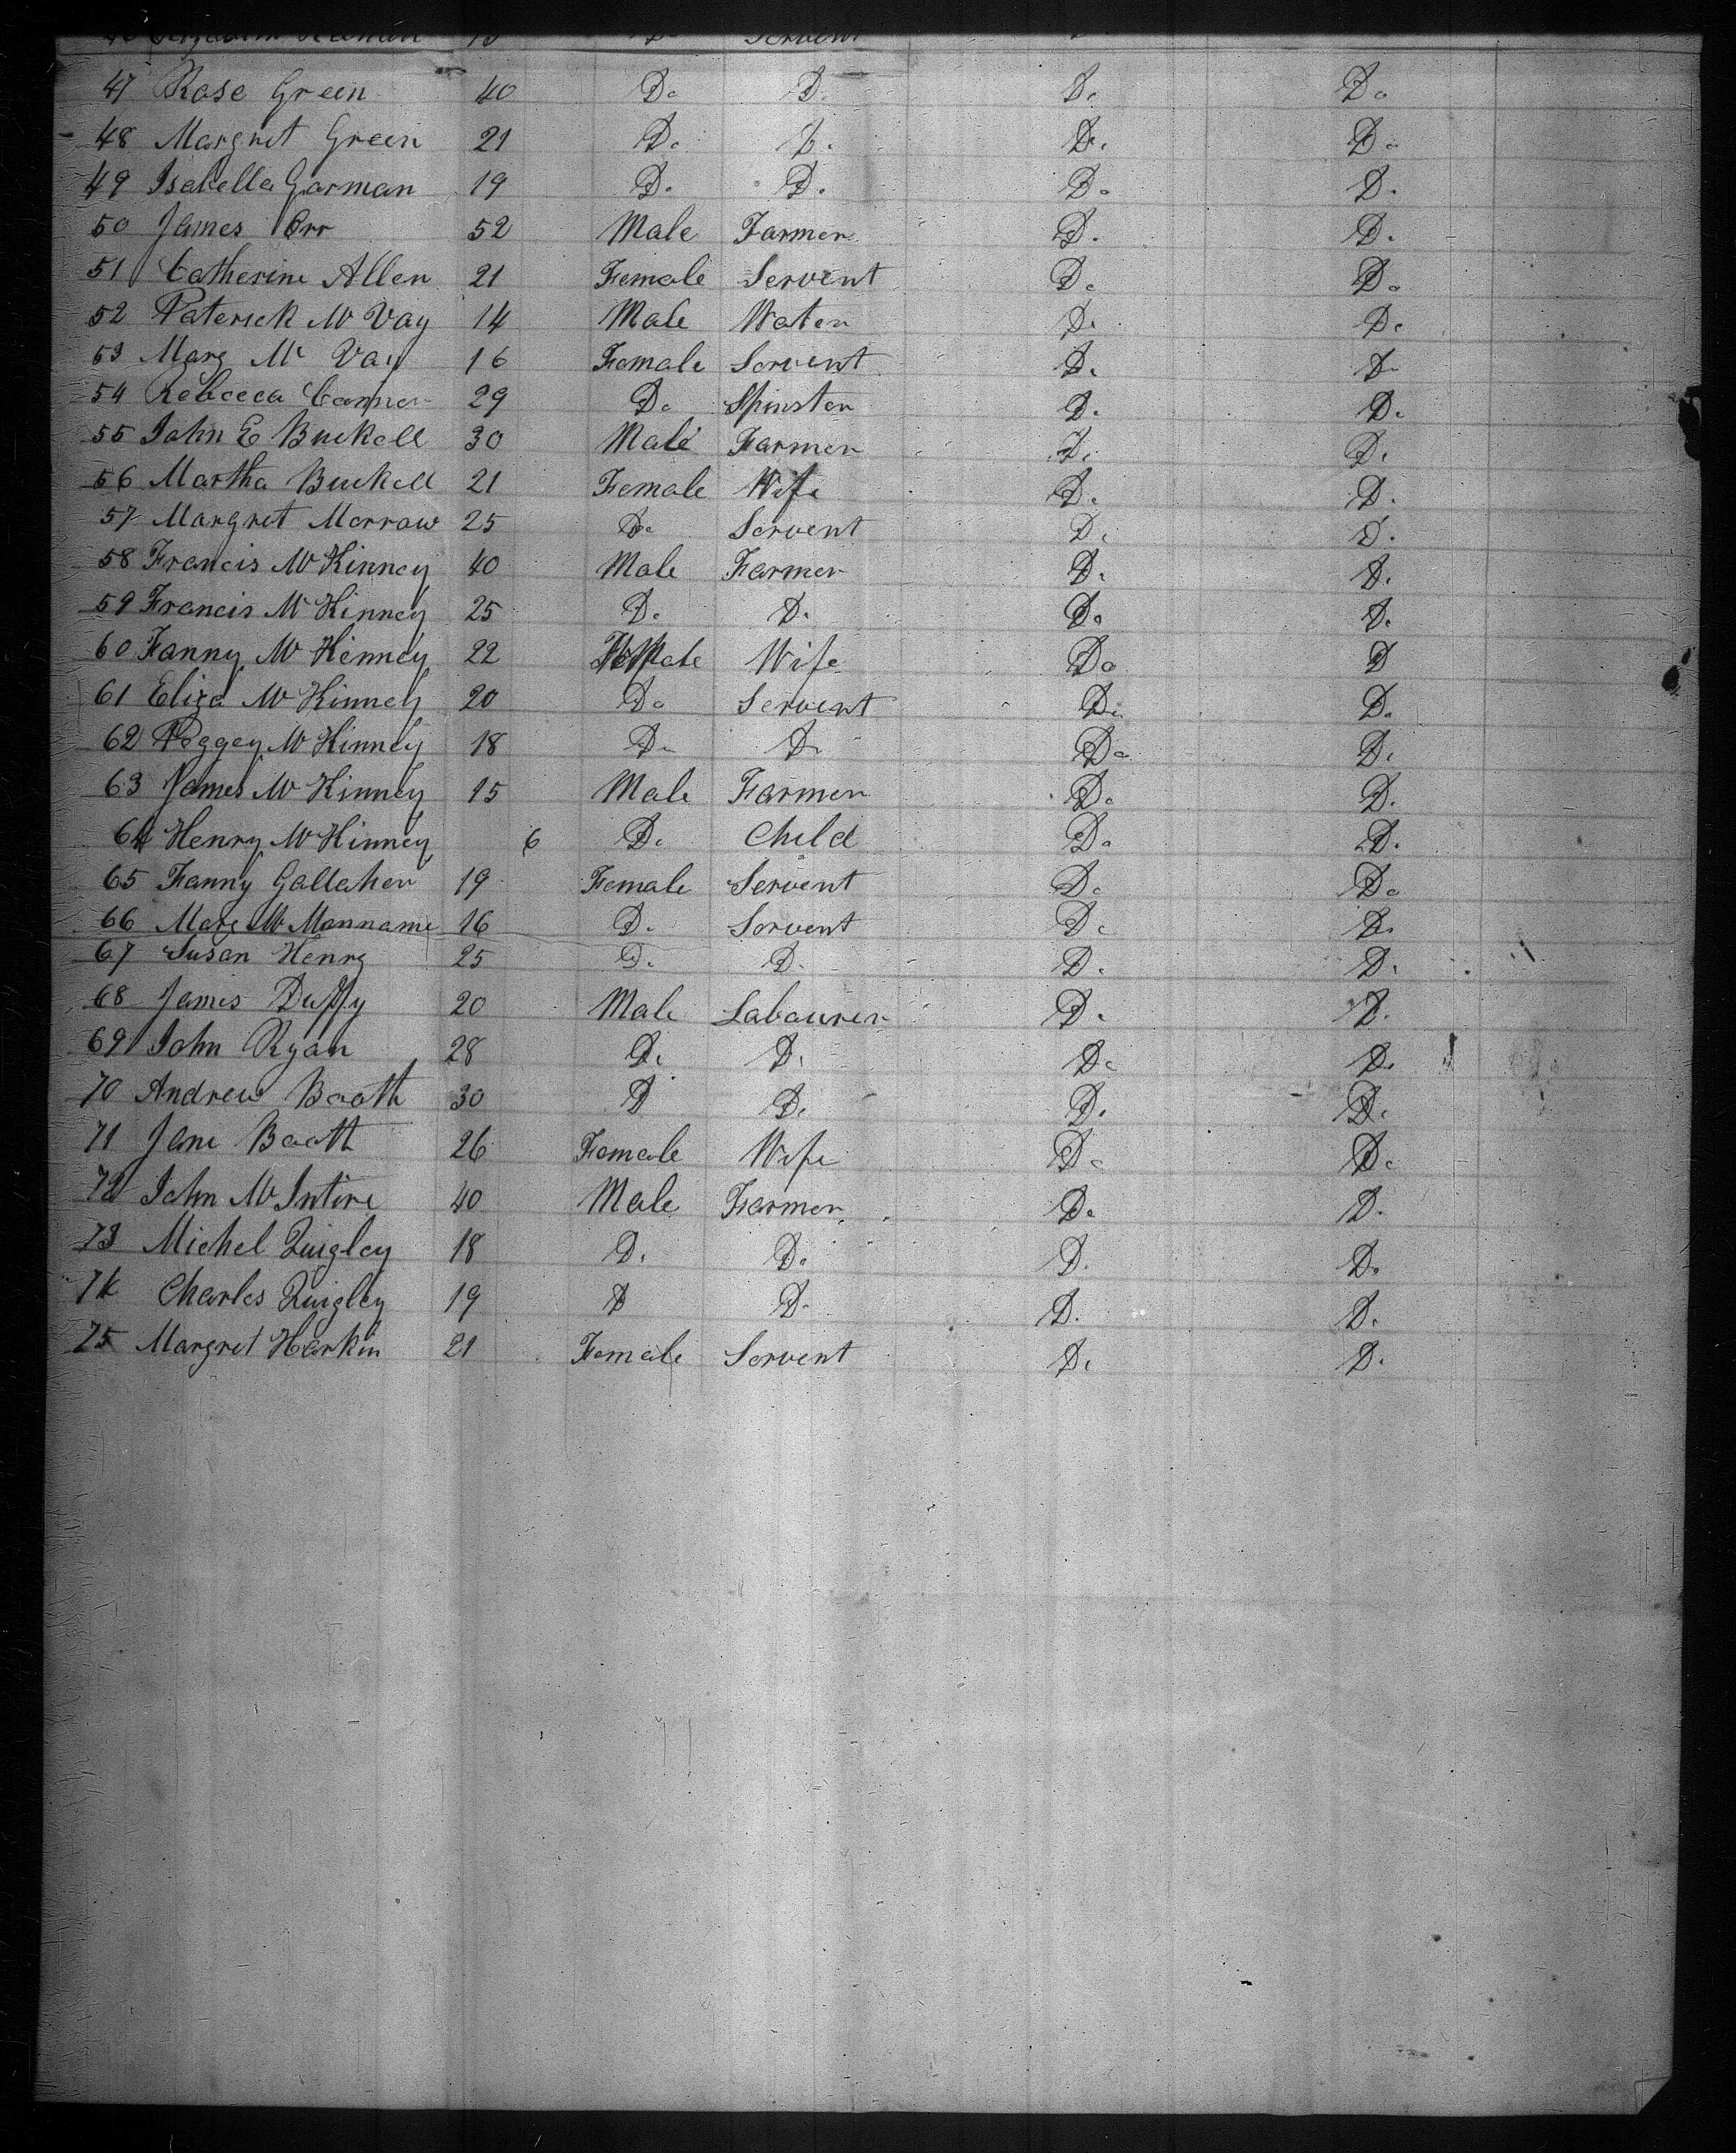 Servent
47 Rose Green 40 Do Do Do Do
48 Margret Green 21 Do Do Do Do
49 Isabella Garman 19 Do Do Do Do
50 James Orr 52 Male Farmer Do Do
51 Catherine Allen 21 Female Servent Do Do
52 Paterick Mc Vay 14 Male Water Do Do
53 Marg Mc Vay 16 Female Servent Do Do
54 Rebecca Conner 29 Do Spinster Do Do
55 John E Buckell 30 Male Farmer Do Do
56 Martha Buckell 21 Female Wife Do Do
57 Margret Morrow 25 Do Servent Do Do
58 Francis Mc Kinney 40 Male Farmer Do Do
59 Francis Mc Kinney 25 Do Do Do Do
60 Fanny Mc Kinney 22 Female Wife Do D
61 Eliza Mc Kinney 20 Do Servent Do Do
62 Peggey Mc Kinney 18 Do Do Do Do
63 James Mc Kinney 15 Male Farmer Do Do
64 Henry Mc Kinney 6 Do Child Do Do
65 Fanny Gallaher 19 Female Servent Do Do
66 Mare Mc Manname 16 Do Servent Do Do
67 Susan Henry 25 Do Do Do Do
68 James Duffy 20 Male Labourer Do Do
69 John Ryan 28 Do Do Do Do
70 Andrew Booth 30 D Do Do Do
71 Jane Booth 26 Female Wife Do Do
72 John Mc Intire 40 Male Farmer Do Do
73 Michel Quigley 18 Do Do Do Do
74 Charles Quigley 19 D Do Do Do
75 Margret Harkin 21 Female Servent Do Do